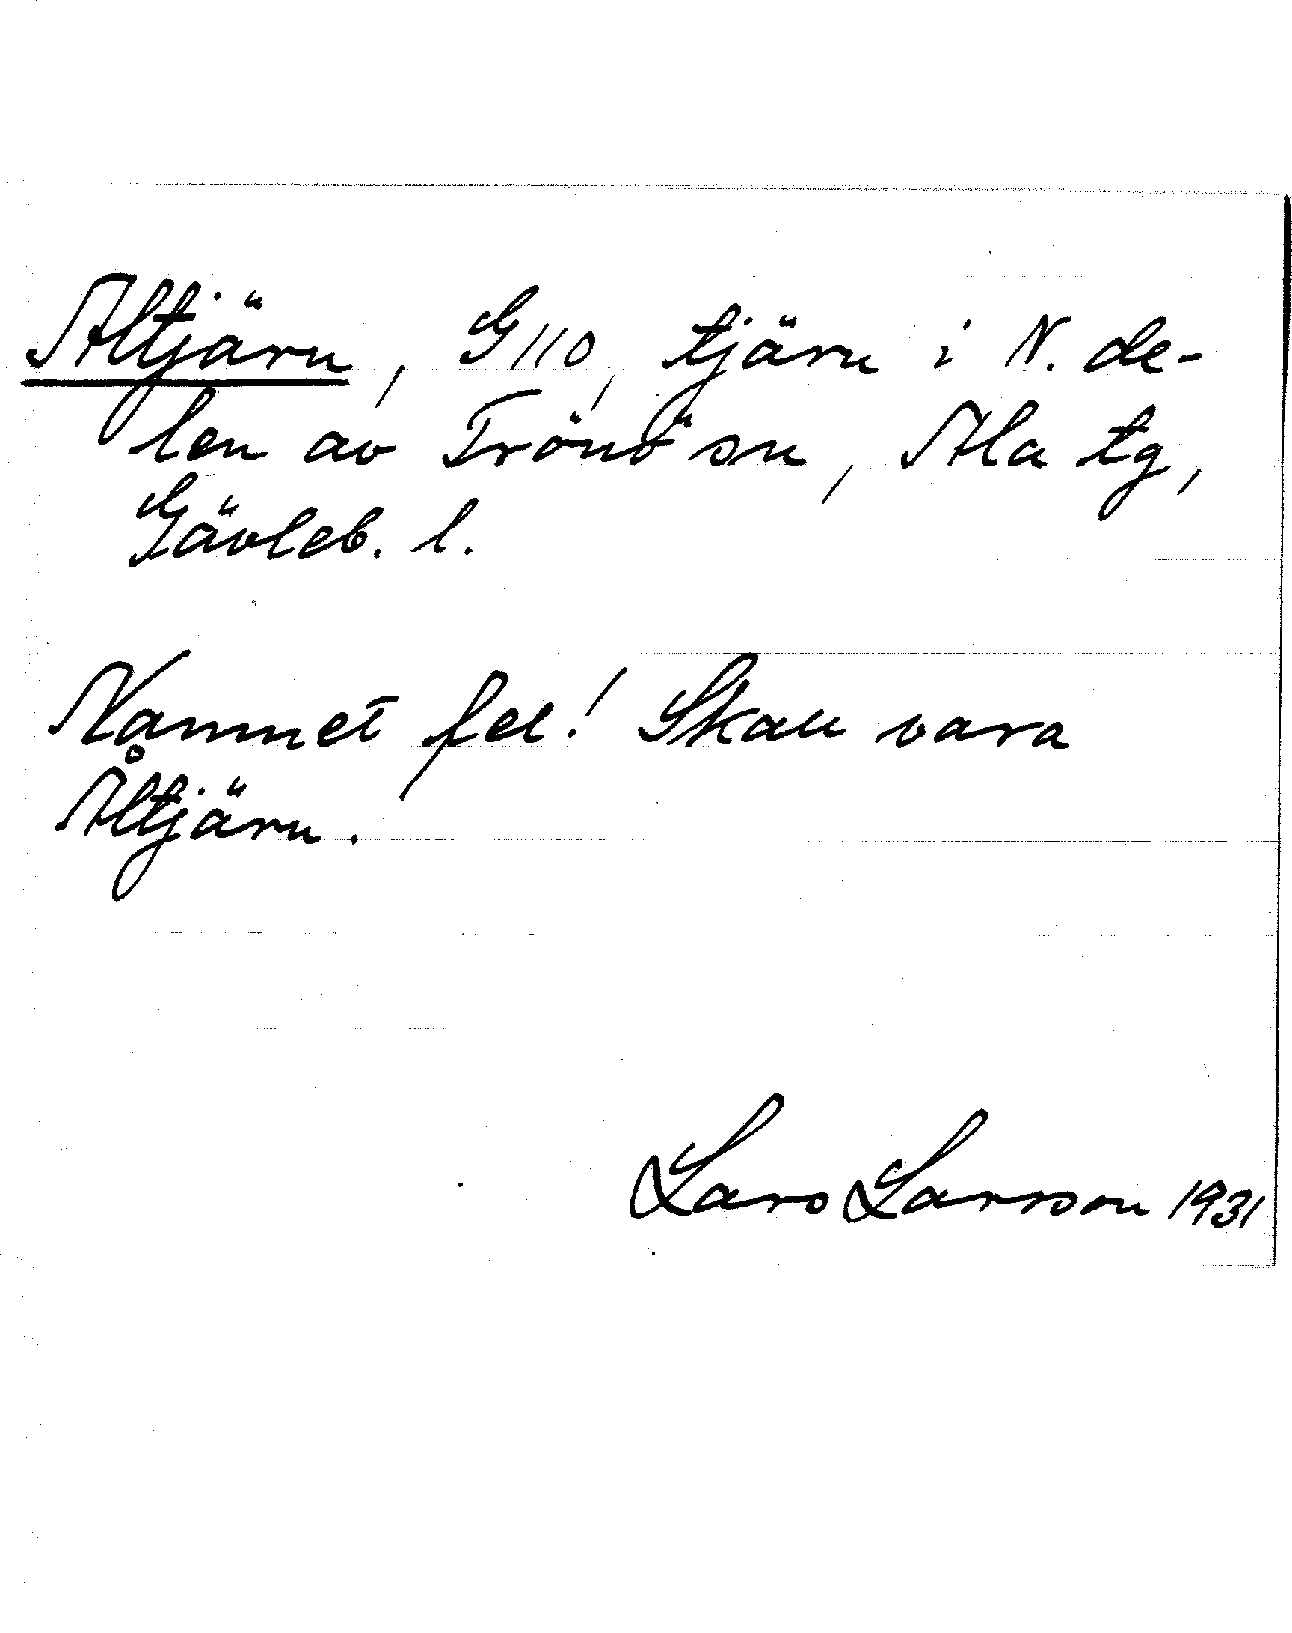 Altjärn, G 110, tjärn i N. de-
len av Trönö sn, Ala tg,
Gävleb. l.
Namnet fel! Skall vara
Åltjärn.
Lars Larsson 1931